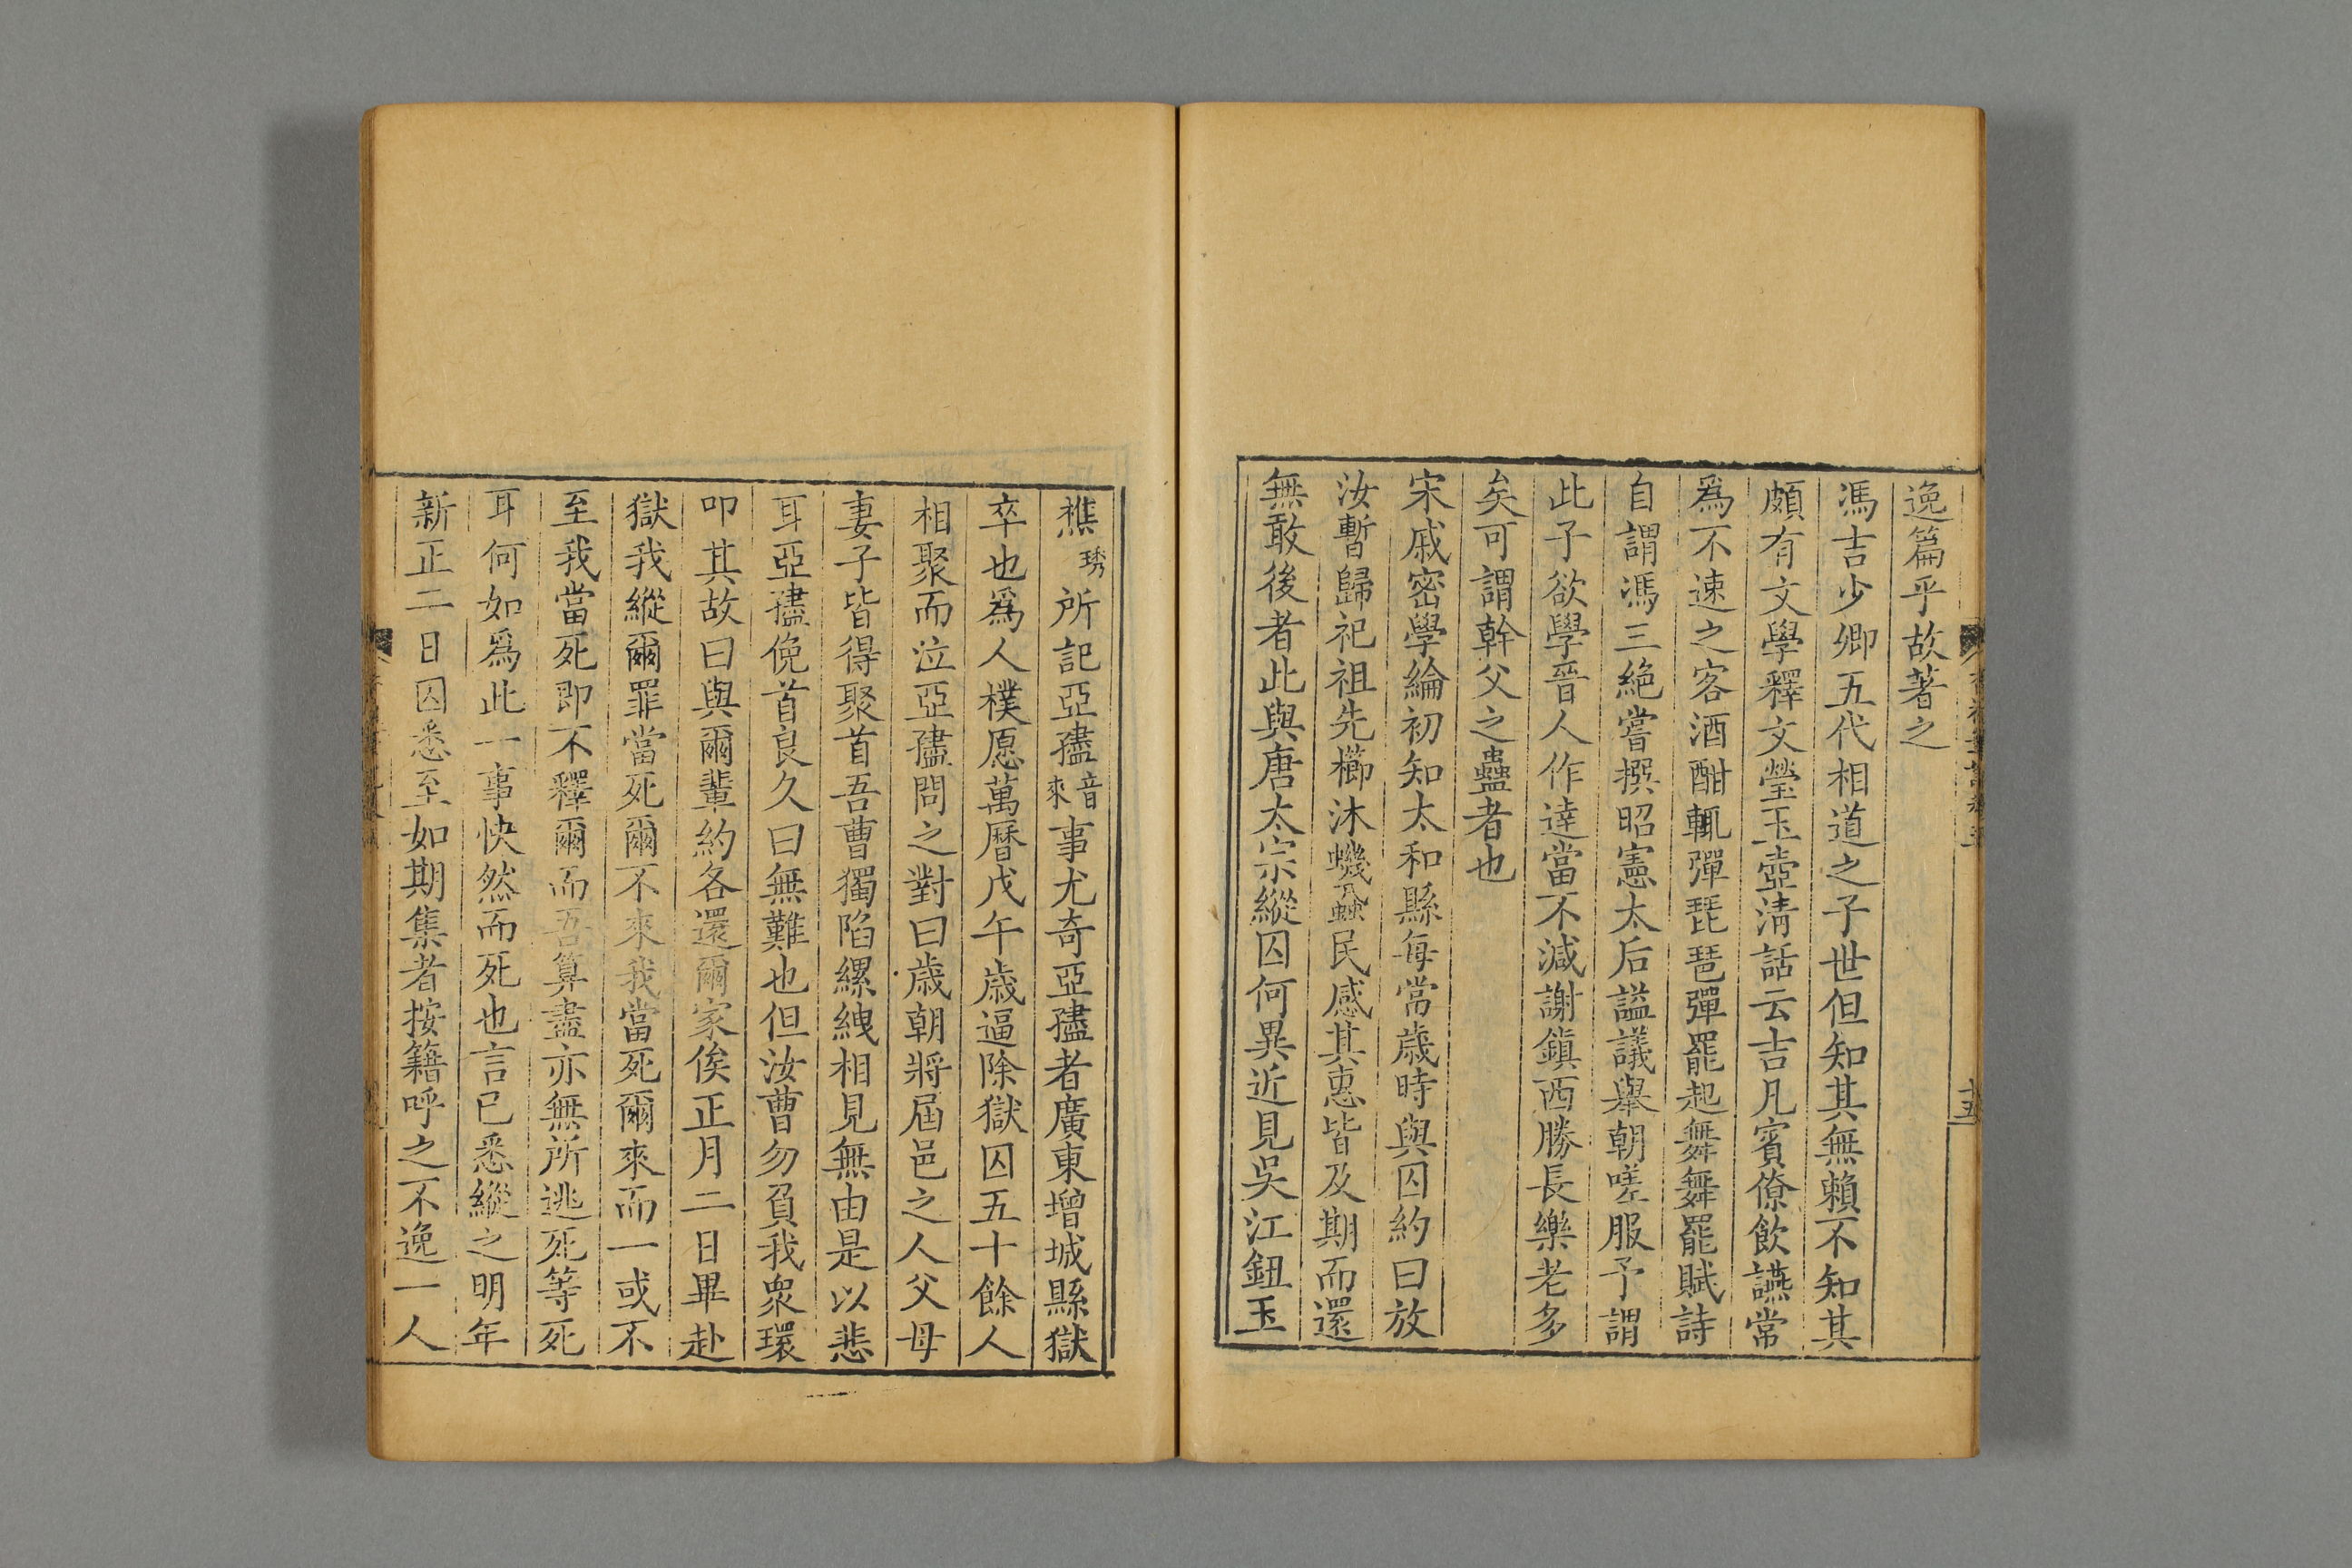 逸篇乎故著之
馮吉少卿五代相道之子世但知其無賴不知其
頗有文學釋文瑩玉壺淸話云吉凡賓僚飲讌常
爲不速之客酒酣輒彈琵琶彈罷起舞舞罷賦詩
自謂馮三絶嘗撰昭憲太后謚議舉朝嗟服予謂
此子欲學晉人作逹當不減謝鎭西勝長樂老多
矣可謂幹父之蠱者也
宋戚密學綸初知太和縣每當歲時與囚約曰放
汝暫歸祀祖先櫛沐蟣蝨民感其惠皆及期而還
無敢後者此與唐太宗縱囚何異近見吳江鈕玉
樵琇所記亞𡤻音來事尤奇亞𡤻者廣東增城縣獄
卒也爲人樸愿萬曆戊午歲逼除獄囚五十餘人
相聚而泣亞𡤻問之對曰歲朝將屆邑之人父母
妻子皆得聚首吾曹獨陷縲絏相見無由是以悲
耳亞𡤻俛首良久曰無難也但汝曹勿負我衆環
叩其故曰與爾輩約各還爾家俟正月二日畢赴
獄我縱爾罪當死爾不來我當死爾來而一或不
至我當死卽不釋爾而吾算盡亦無所逃死等死
耳何如爲此一事快然而死也言已悉縱之明年
新正二日囚悉至如期集者按籍呼之不逸一人